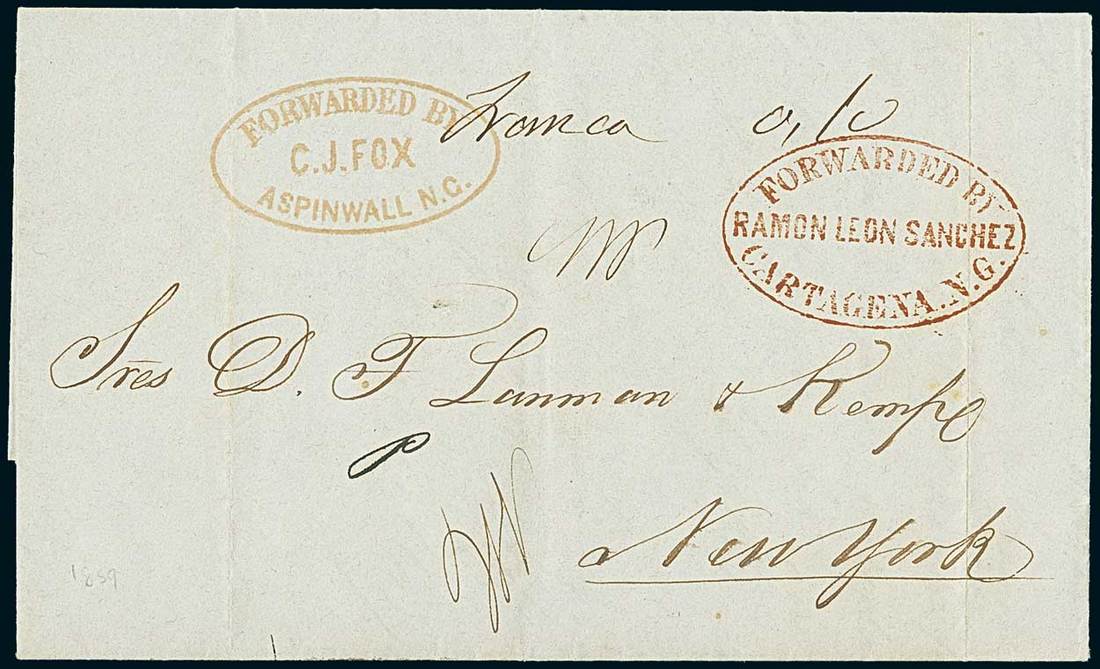 FORWARDED BY
C.J. FOX
ASPINWALL N.G.
Franca
FORWARDED BY
RAMON LEON SANCHEZ
CARTAGENA. N.G.
Sres D. T Lanman & Kemp
New York
1859